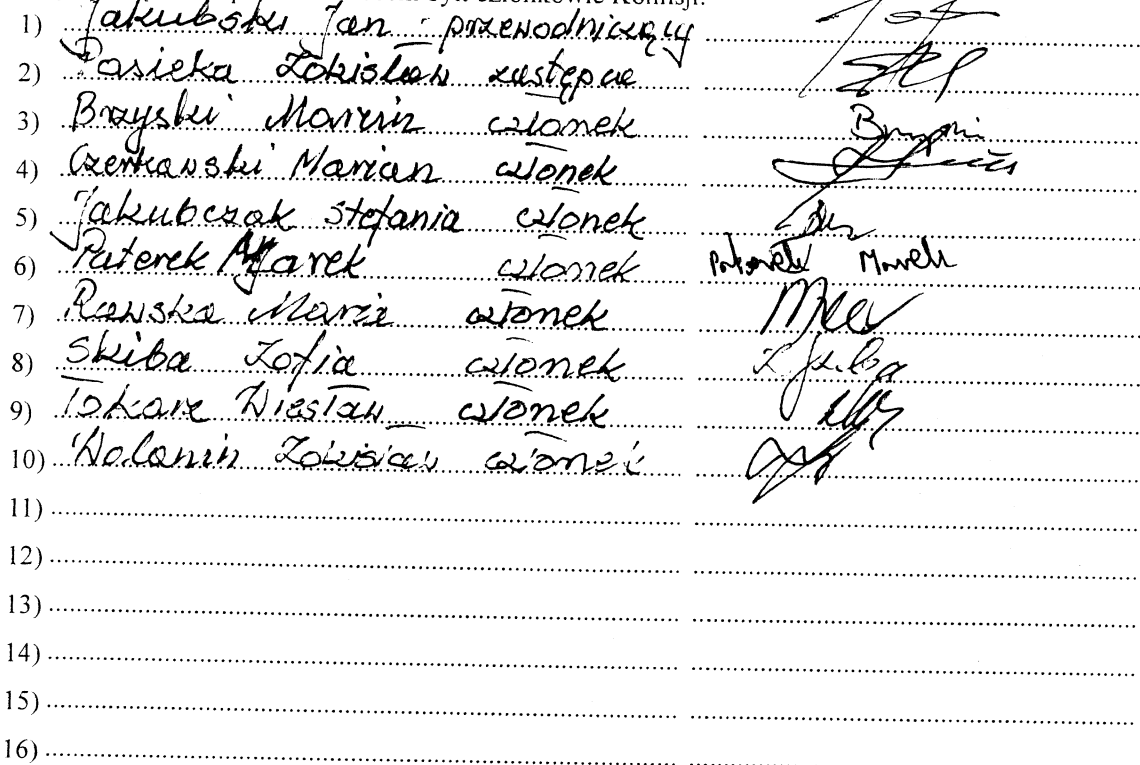 członkowie Komisji:
1) Jakubski Jan - przewodniczący
2) Pasieka Zdzisław zastępca
3) Brzyski Marcin członek
4) Czerkawski Marian członek
5) Jakubczak Stefania członek
6) Paterek Marek członek Paterek Marek
7) Rawska Maria członek
8) Skiba Zofia członek
9) Tokarz Wiesław członek
10) Wolanin Zdzisław członek
11)
12)
13)
14)
15)
16)